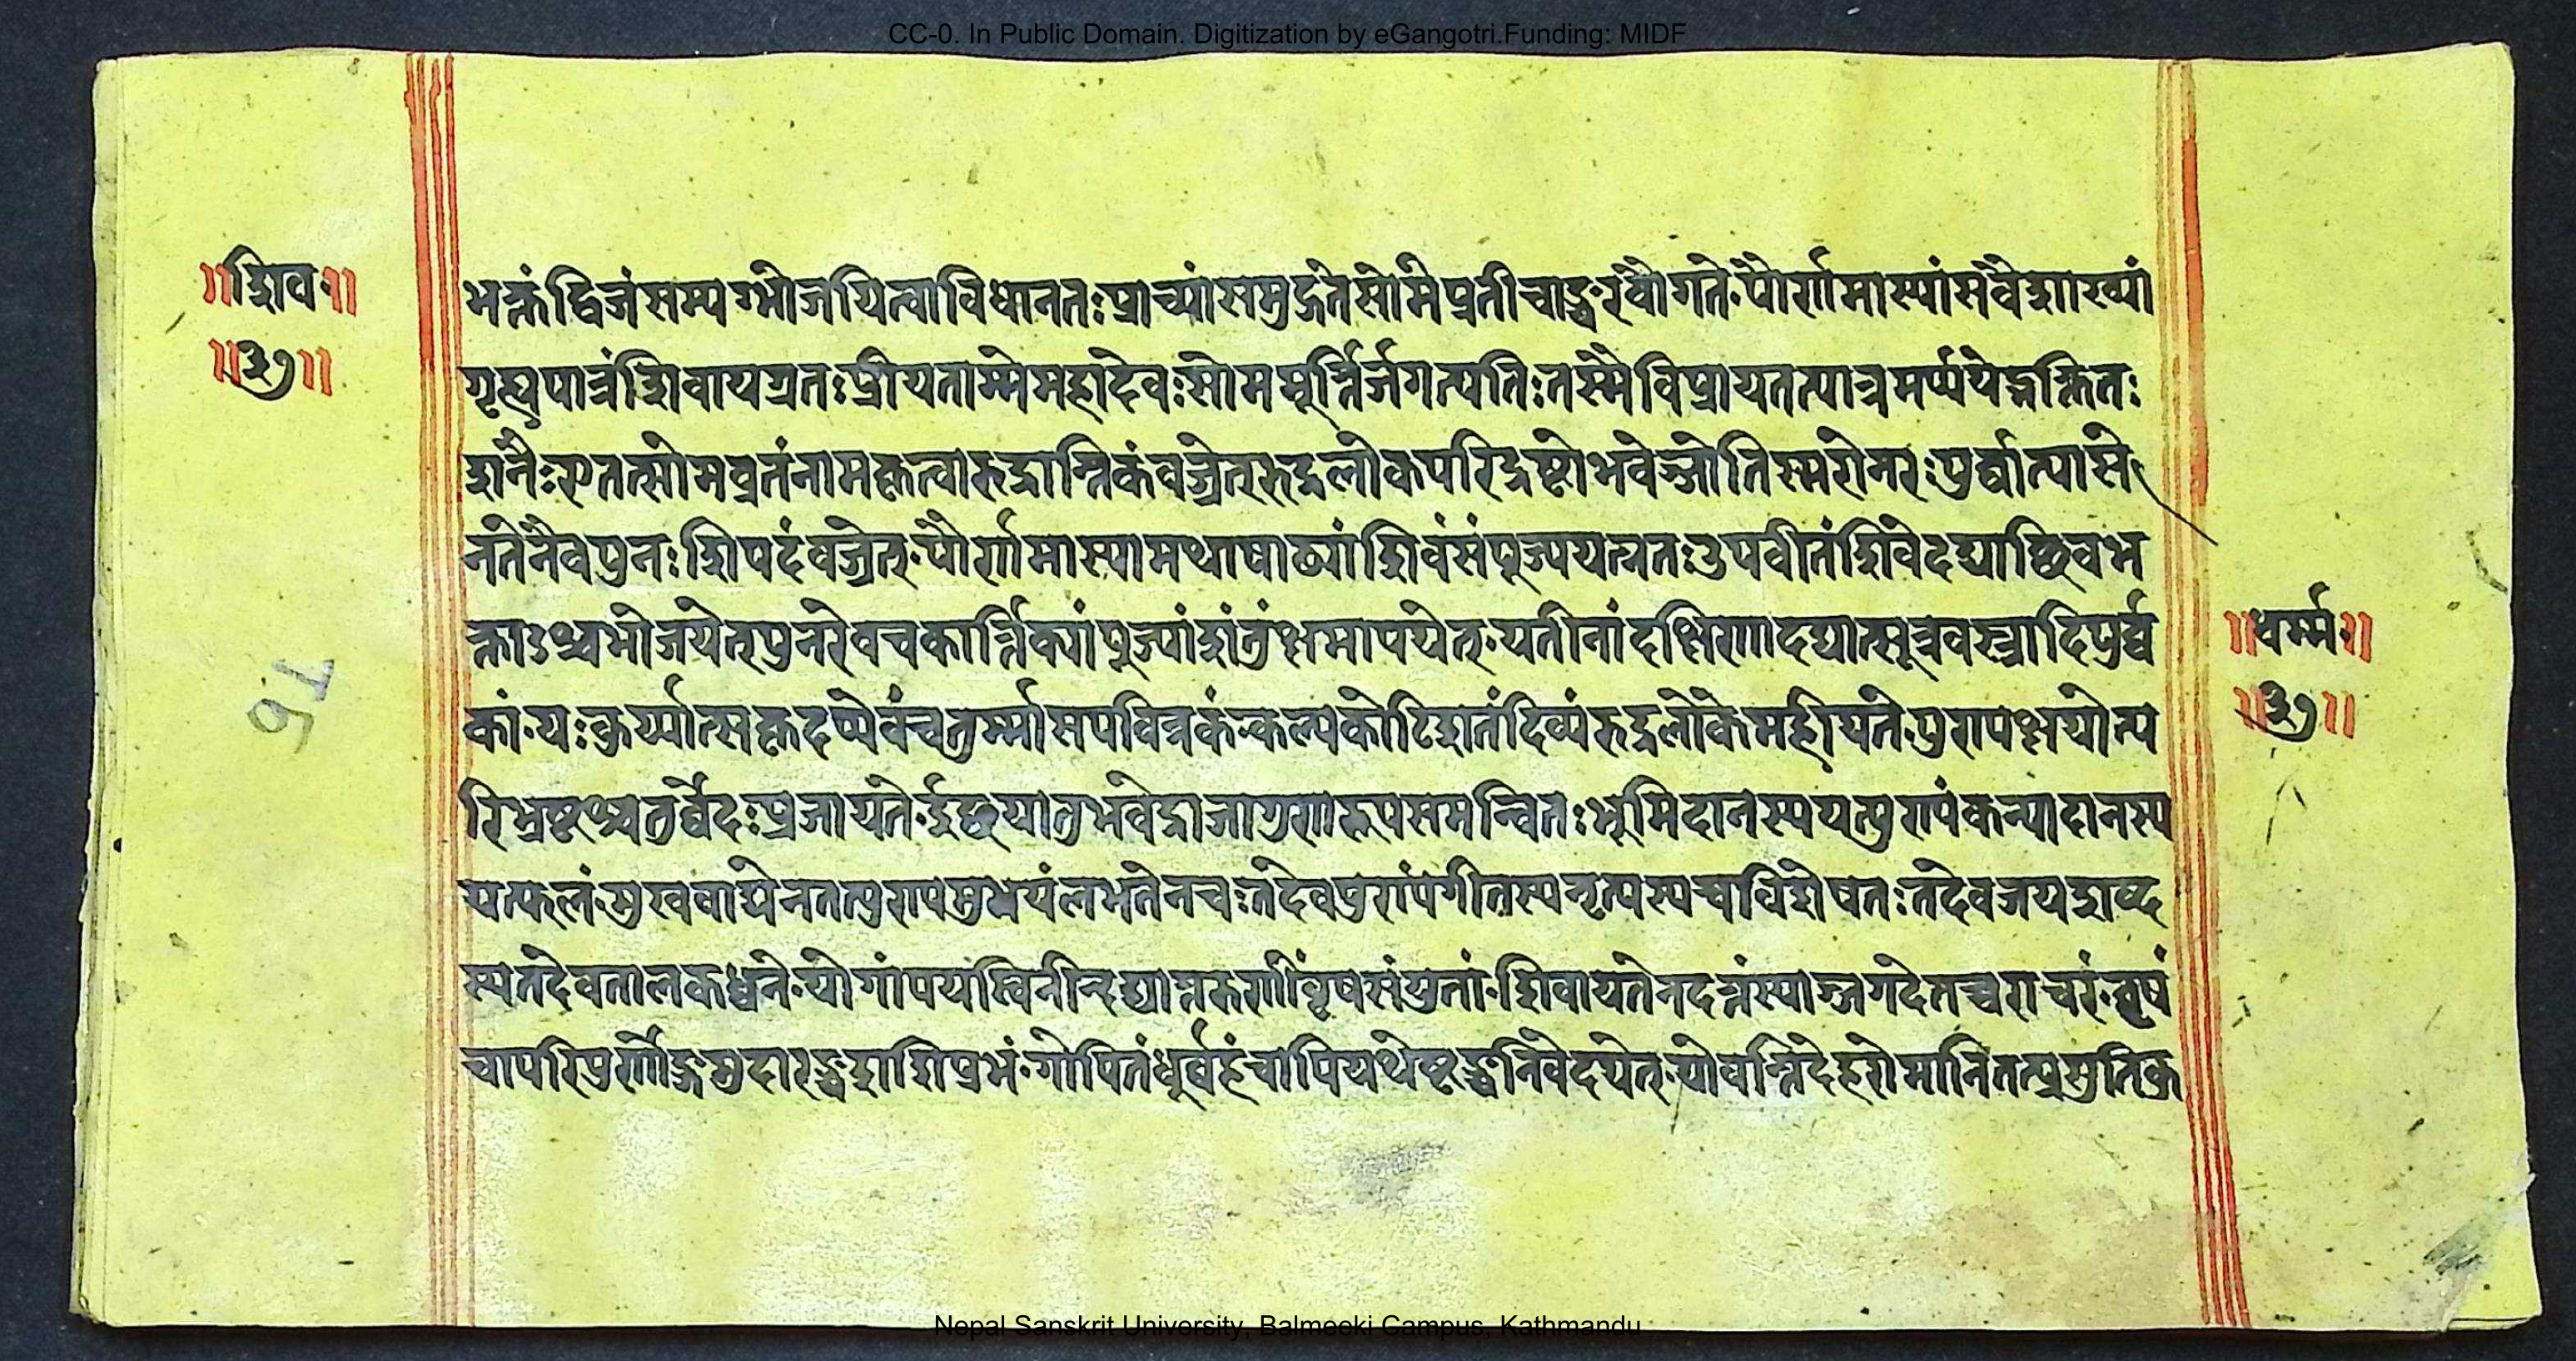 CC-0. In Public Domain. Digitization by eGangotri.Funding: MIDF
॥शिव॰॥
॥३७॥
भक्तंद्विजंसम्यग्भोजयित्वाविधानतःप्राच्यांसमुद्गतेसोमेप्रतीचाङ्चरवौगते॰पौर्णमास्यांसवैशाख्यां
गृह्यपात्रंशिवायग्रतःप्रीयताम्मेमहादेवःसोममूर्त्तिर्जगत्पतिःतस्मैविप्रायतत्पात्रमर्प्पयेद्भक्तितः
शनैःएतत्सोमव्रतंनामकृत्वारुद्रान्तिकंवज्रेत्॰रुद्रलोकपरिद्रष्टोभवेज्जोतिस्मरोनरःपुर्व्वात्पासे
नतेनैवपुनःशिपदंवज्रेत्॰पौर्णमास्यामथाषाढ्यांशिवंसंपूज्पयत्नतःउपवीतंशिवेदद्याछिवभ
क्ताऽश्चभोजयेत्पुनरेवचकार्त्तिक्यांपुज्यांशंतुंक्षमापयेत्॰यतीनांदक्षिणादद्यात्सूत्रवस्त्रादिपुर्व्व
कां॰यःकुर्य्यात्सकृदप्येवंचतुर्म्मासपवित्रकं॰कल्पकोटिशतंदिव्यंरुद्रलोकेमहीयते॰पुरापक्षयोत्प
रिभ्रष्टश्चतुर्व्वेदःप्रजायते॰र्दुछयातुभवेद्राजागुणरूपसमन्वितःभुमिदानस्पयत्पुरापंकन्यादानस्प
यत्फलं॰मुखवाद्येनतत्पुरापमुभयंलभतेनचःतदेवपुरांपंगीतस्पनृत्यस्पचविशेषतःतदेवजयशब्द
स्यतदेवतालकध्वने॰योगांपयस्विनीन्दद्यात्तरुणींवृषसंयुतां॰शिवायतेनदत्तंस्याज्जगदेतच्चराचरं॰वृषं
चापरिपुर्णाङ्गमुदारङ्चशशिप्रभं॰गोपितंधुर्वहंचापियथेष्टङ्चनिवेदयेत्॰योवन्तिदेहरोमानितत्प्रसुतिकु
॥धर्म्म॰॥
॥३७॥
Nepal Sanskrit University, Balmeeki Campus, Kathmandu